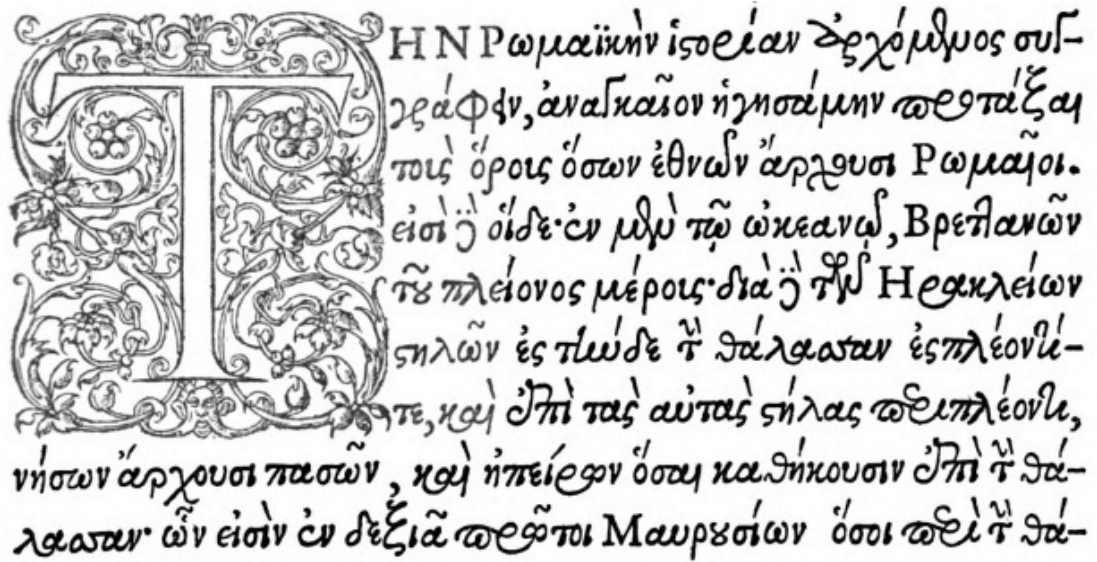 ΤΗΝ Ρωμαϊκὴν ἱστορίαν ἀρχόμενος συγ-
γράφειν, ἀναγκαῖον ἡγησάμην προτάξαι
τοὺς ὅρους ὅσων ἐθνῶν ἄρχουσι Ρωμαῖοι.
εἰσὶ δὲ οἵδε· ἐν μὲν τῷ ὠκεανῷ, Βρετλανῶν
τοῦ πλείονος μέρους· διὰ δὲ τῶν Ηρακλείων
στηλῶν ἐς τήνδε τὴν θάλασσαν ἐσπλέοντί-
τε, καὶ ἐπὶ τὰς αὐτὰς στήλας περιπλέοντι,
νήσων ἄρχουσι πασῶν, καὶ ἠπείρων ὅσαι καθήκουσιν ἐπὶ τὴν θά-
λασσαν· ὧν εἰσὶν ἐν δεξιᾶ πρῶτοι Μαυρουσίων ὅσοι περὶ τὴν θά-